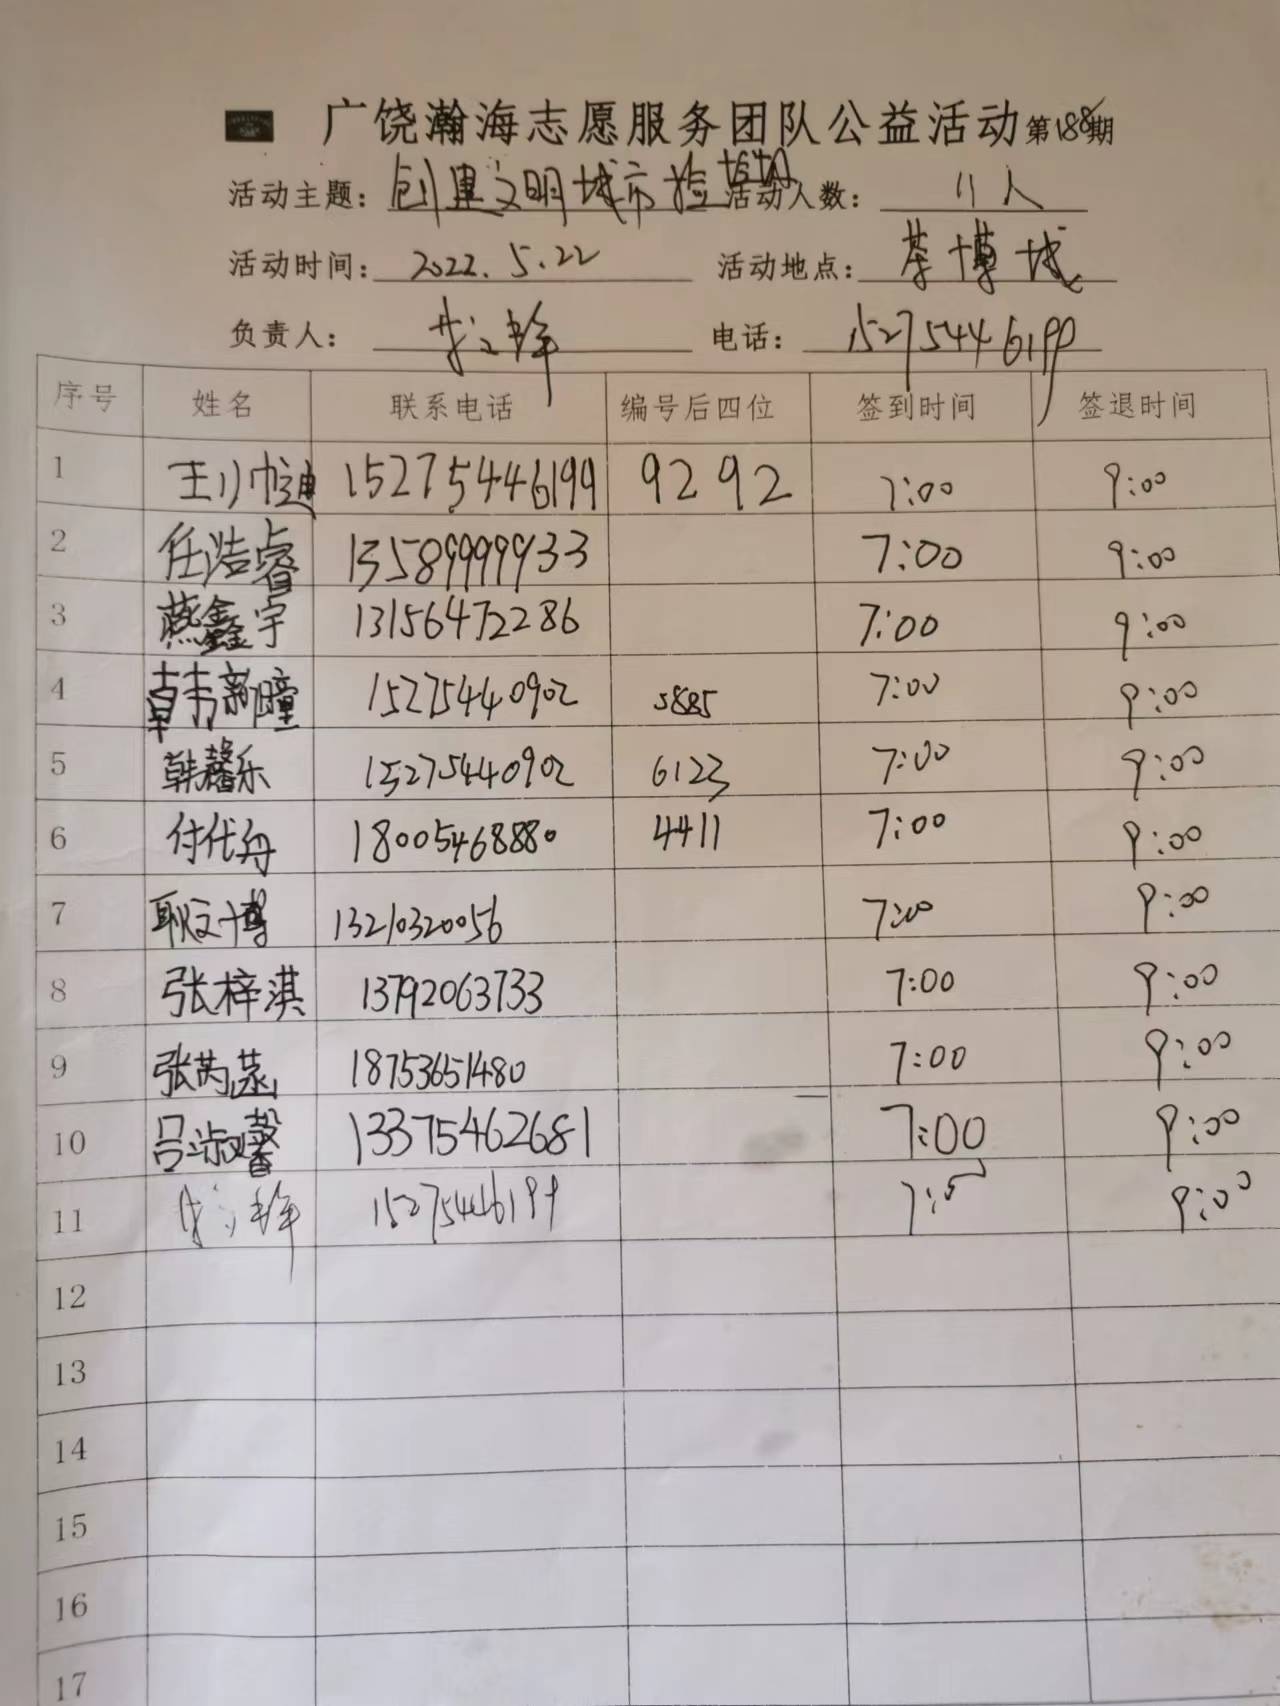 广饶瀚海志愿服务团队公益活动第188期
活动主题：创建文明城市捡 活动人数：11人
活动时间：2022.5.22 活动地点：茶博城
负责人： 电话：15275446199
序号 姓名 联系电话 编号后四位 签到时间 签退时间
1 15275446199 9292 7:00 9:00
2 任浩睿 13589999933 7:00 9:00
3 燕鑫宇 13156472286 7:00 9:00
4 韩新瞳 15275440902 5885 7:00 9:00
5 韩馨乐 15275440902 6123 7:00 9:00
6 付代舟 18005468880 4411 7:00 9:00
7 耿文博 13210320056 7:00 9:00
8 张梓淇 13792063733 7:00 9:00
9 张芮菡 18753651480 7:00 9:00
10 吕淑馨 13375462681 7:00 9:00
11 15275446199 9:00
12
13
14
15
16
17